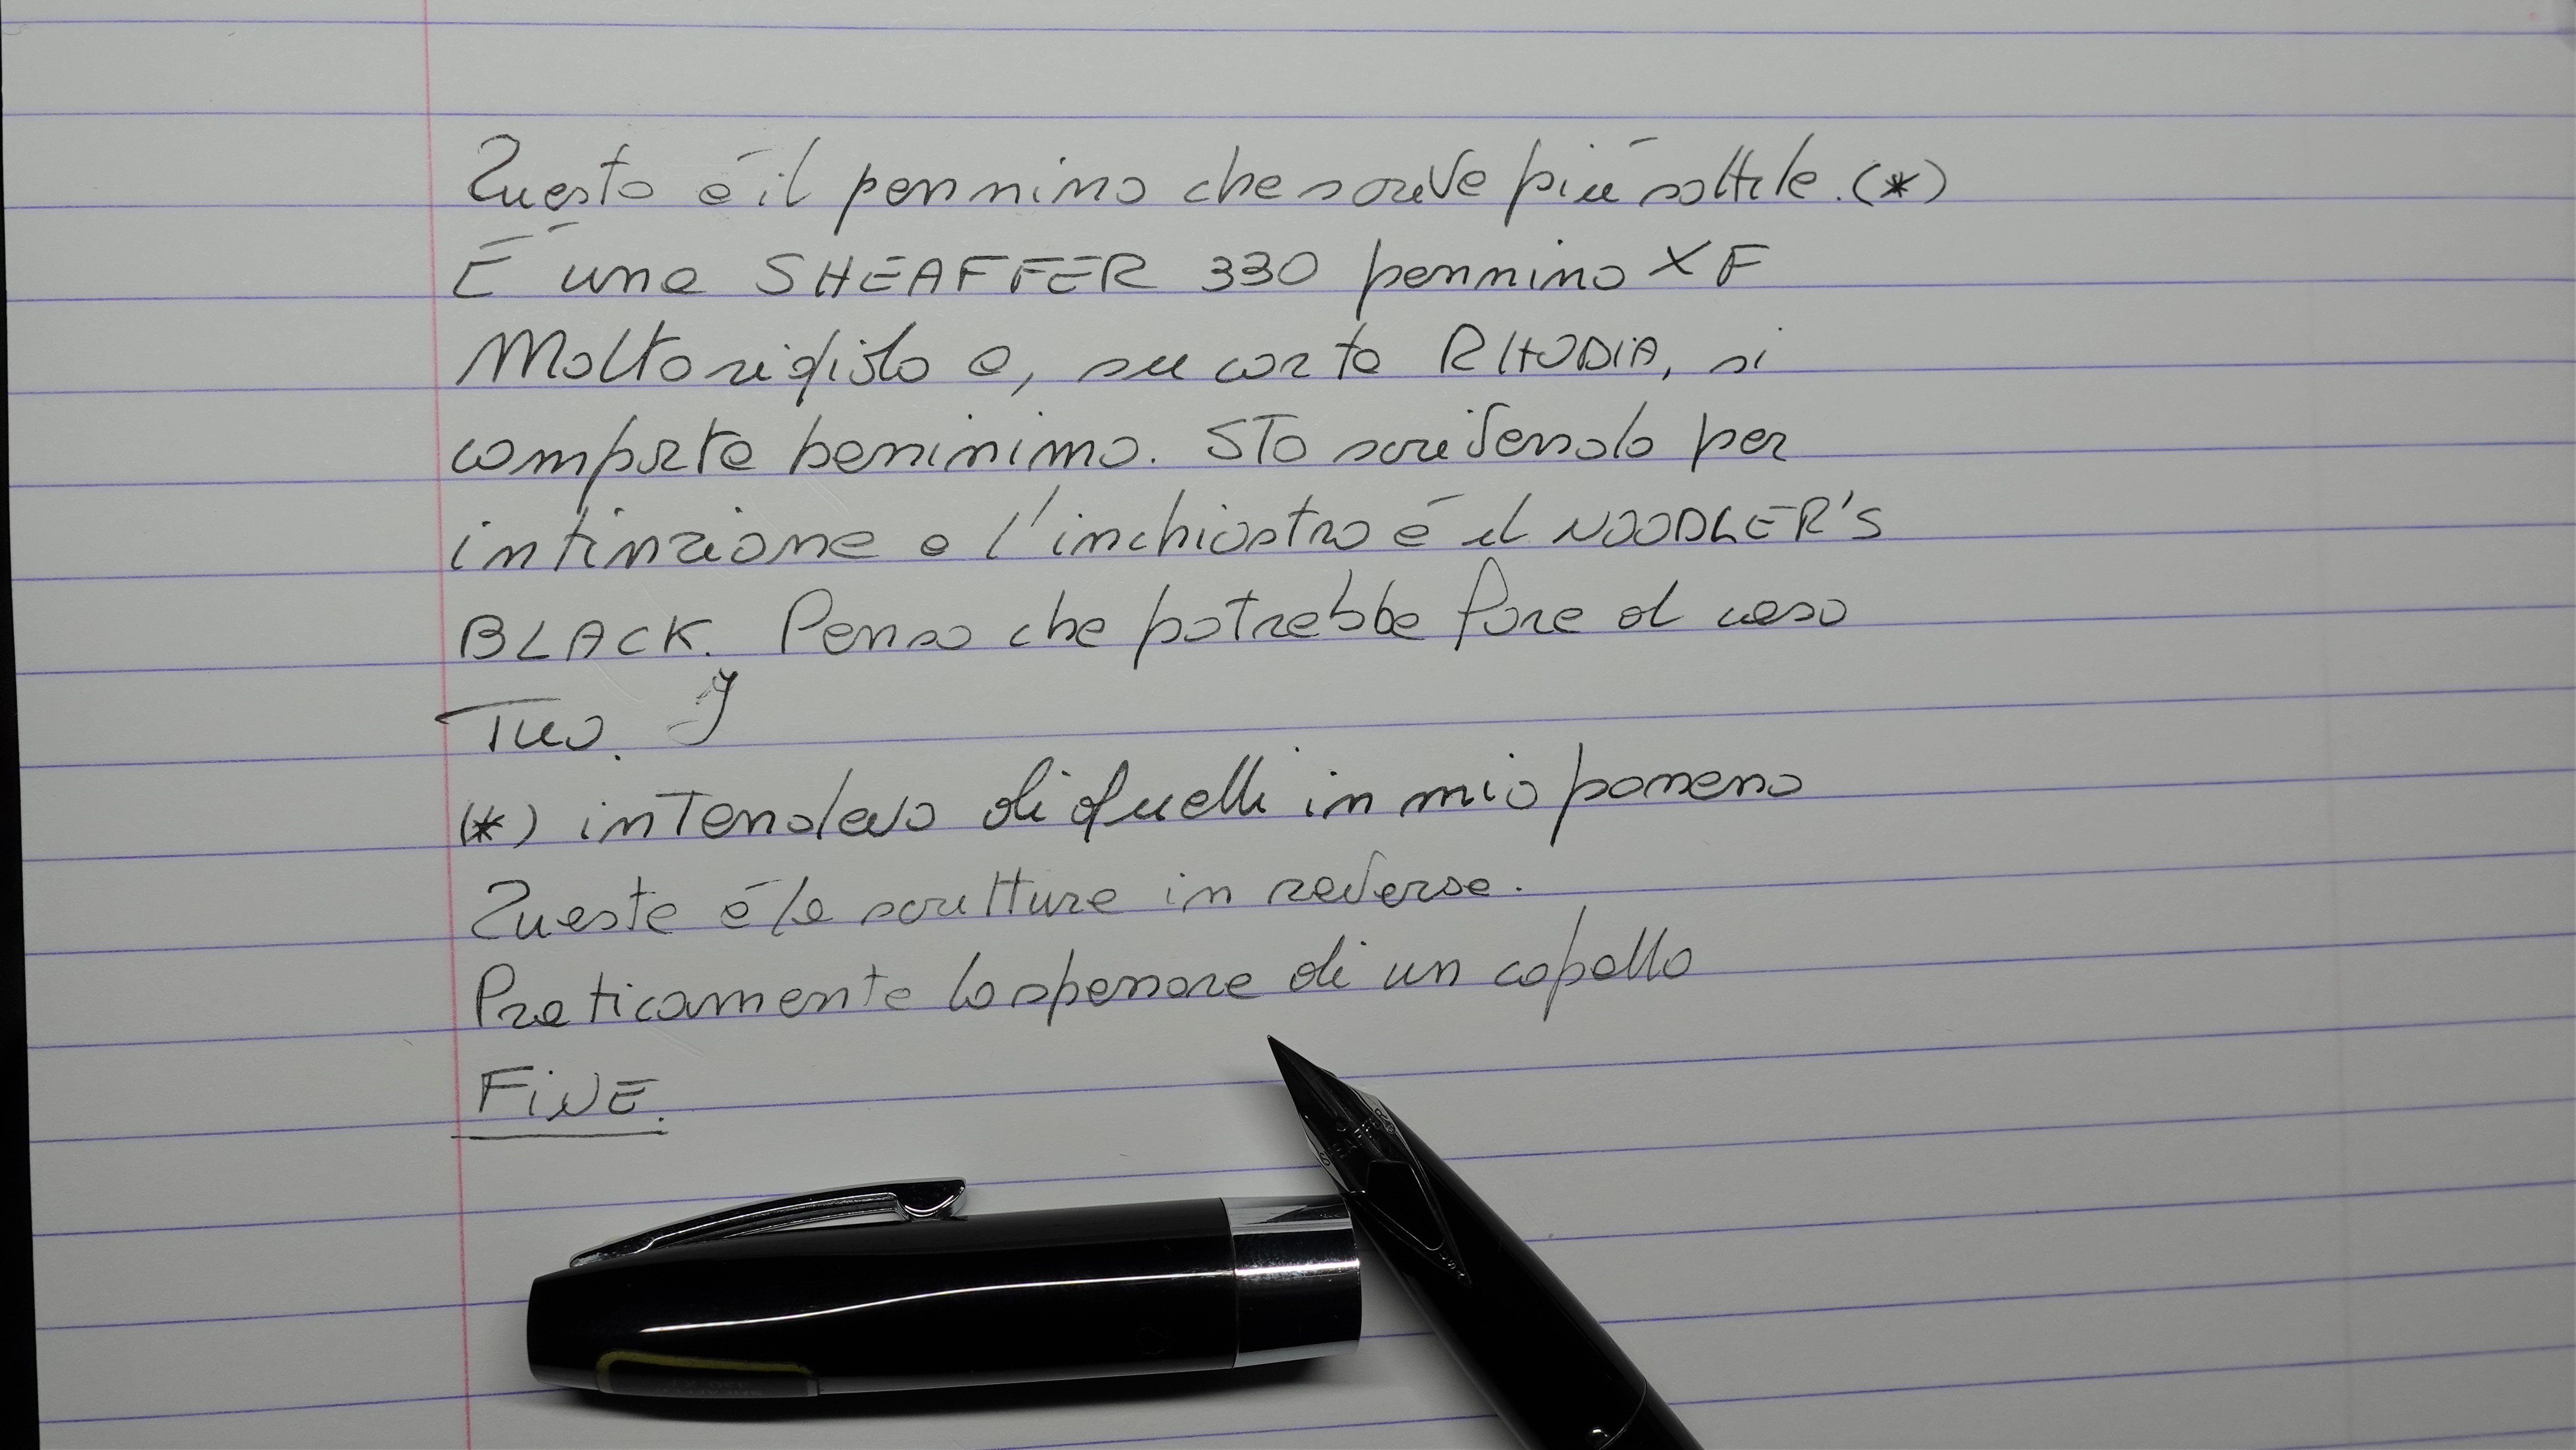 Questo è il pennino che scrive più sottile. (*)
È una SHEAFFER 330 pennino XF
Molto rigido e, su carta RHODIA, si
comporta benissimo. Sto scrivendo per
intinzione e l'inchiostro è il NOODLER'S
BLACK. Penso che potrebbe fare al caso
Tuo.
(*) intendevo di quelli in mio possesso
Questa è la scrittura in reverse.
Praticamente lo spessore di un capello
FINE.